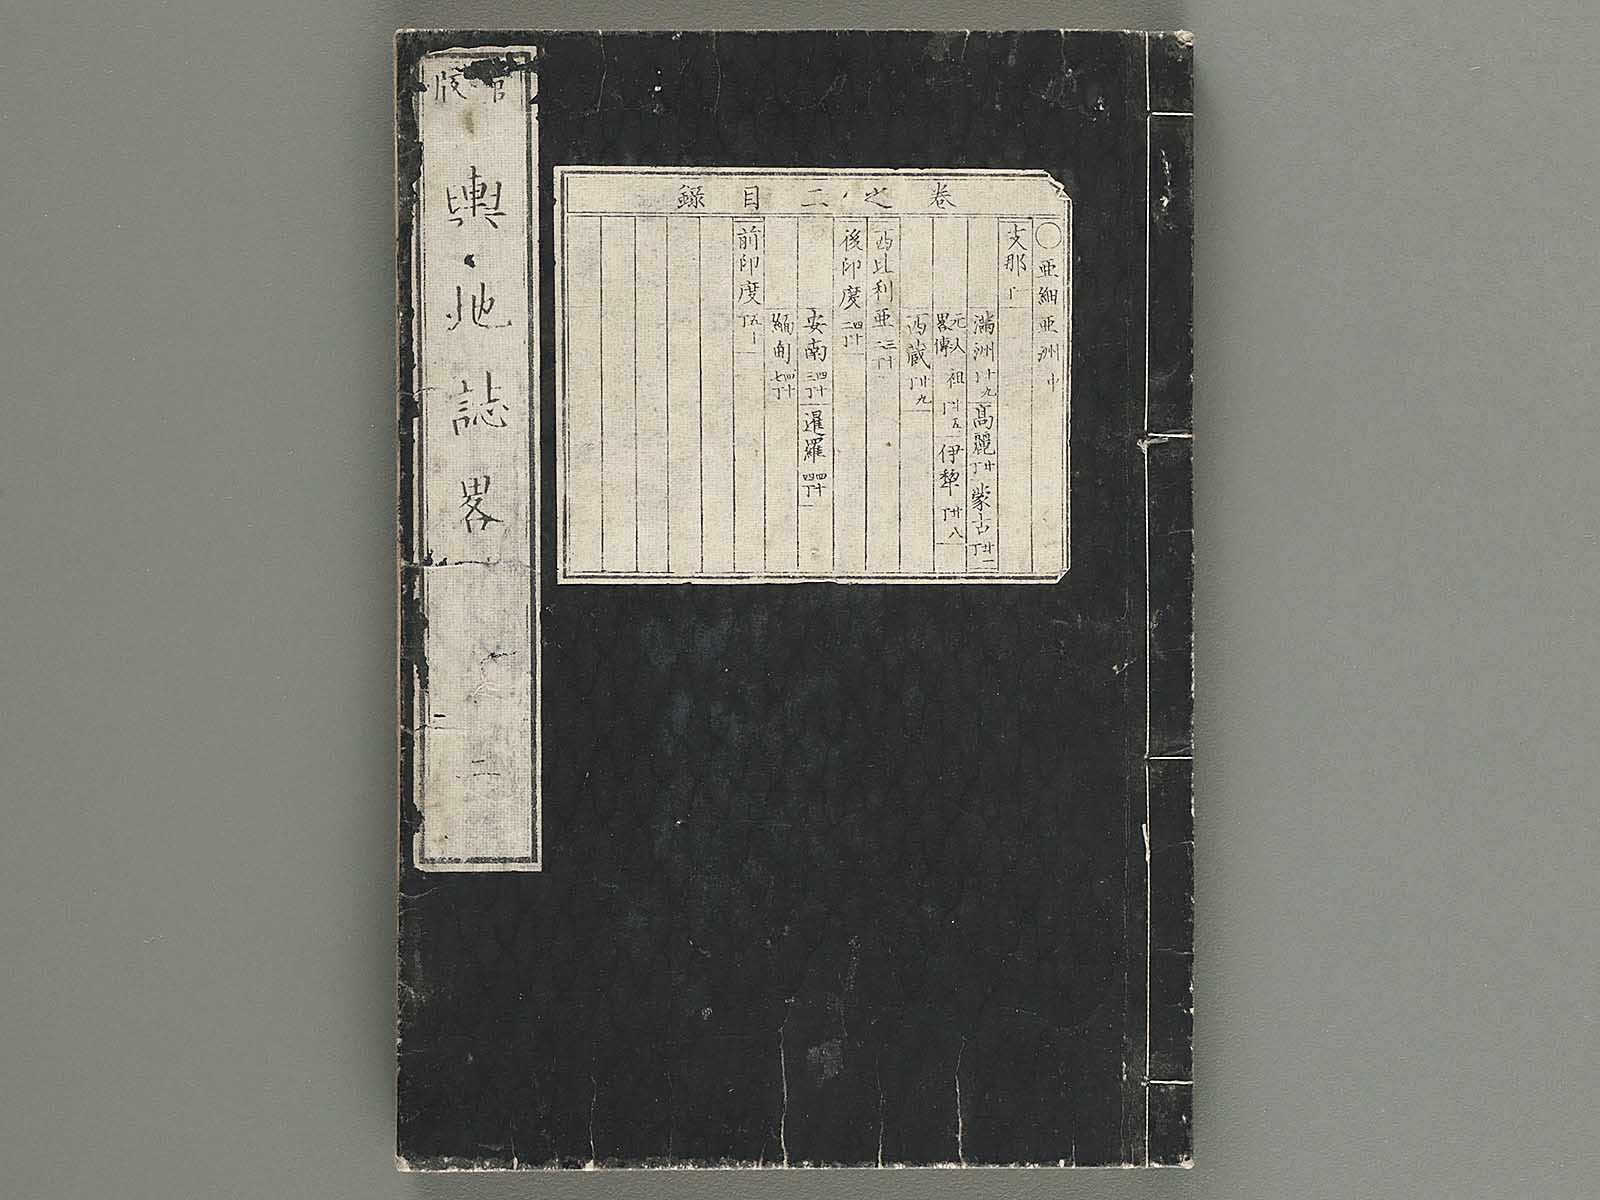 官版
輿地誌畧
二
卷之二目録
〇亜細亜洲中
支那丁一
満洲丁十九 高麗丁廿 蒙古丁廿一
元太祖畧傳丁廿五 伊犂丁廿八
西藏丁廿九
西比利亜三十二丁
後印度四十二丁
安南四十三丁 暹羅四十四丁
緬甸四十七丁
前印度五十丁